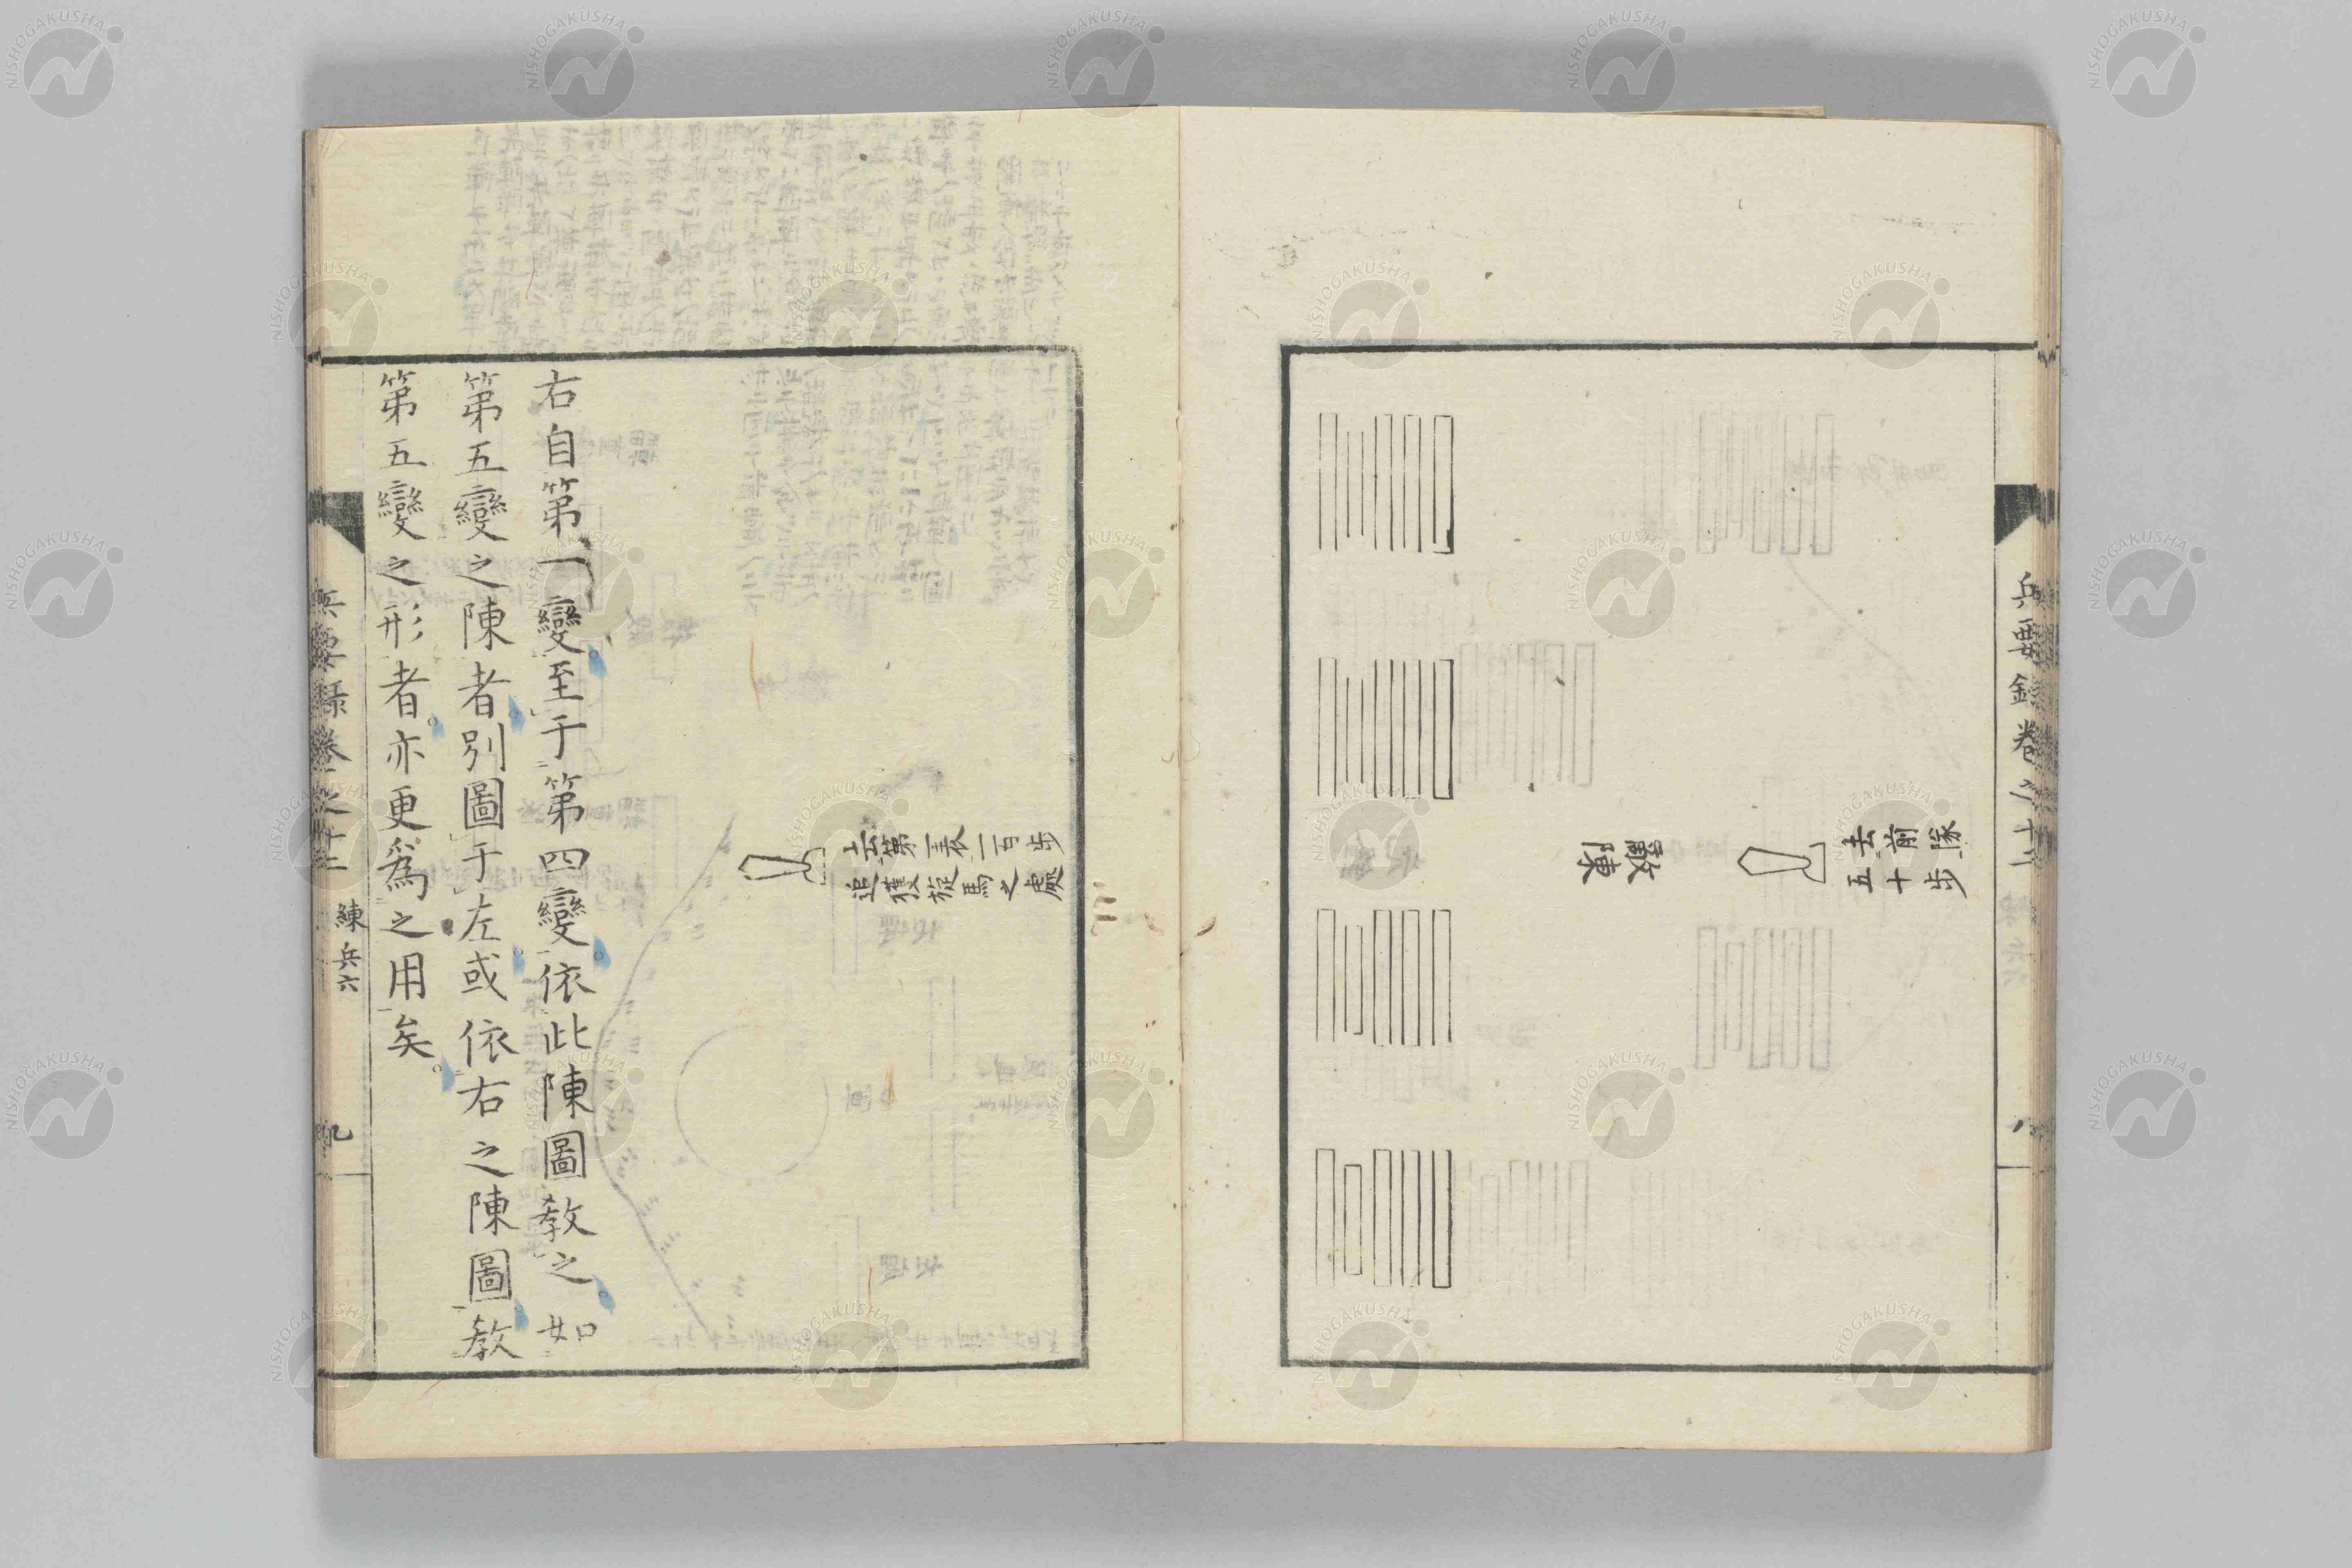 兵要錄卷之十二
八
去前隊
五十步
陳
去第一表一百步
追獲旋馬之處
右自第一變至于第四變依此陳圖教之如
第五變之陳者別圖于左或依右之陳圖教
第五變之形者亦更爲之用矣
兵要錄卷之十二 練兵六
九
NISHOGAKUSHA